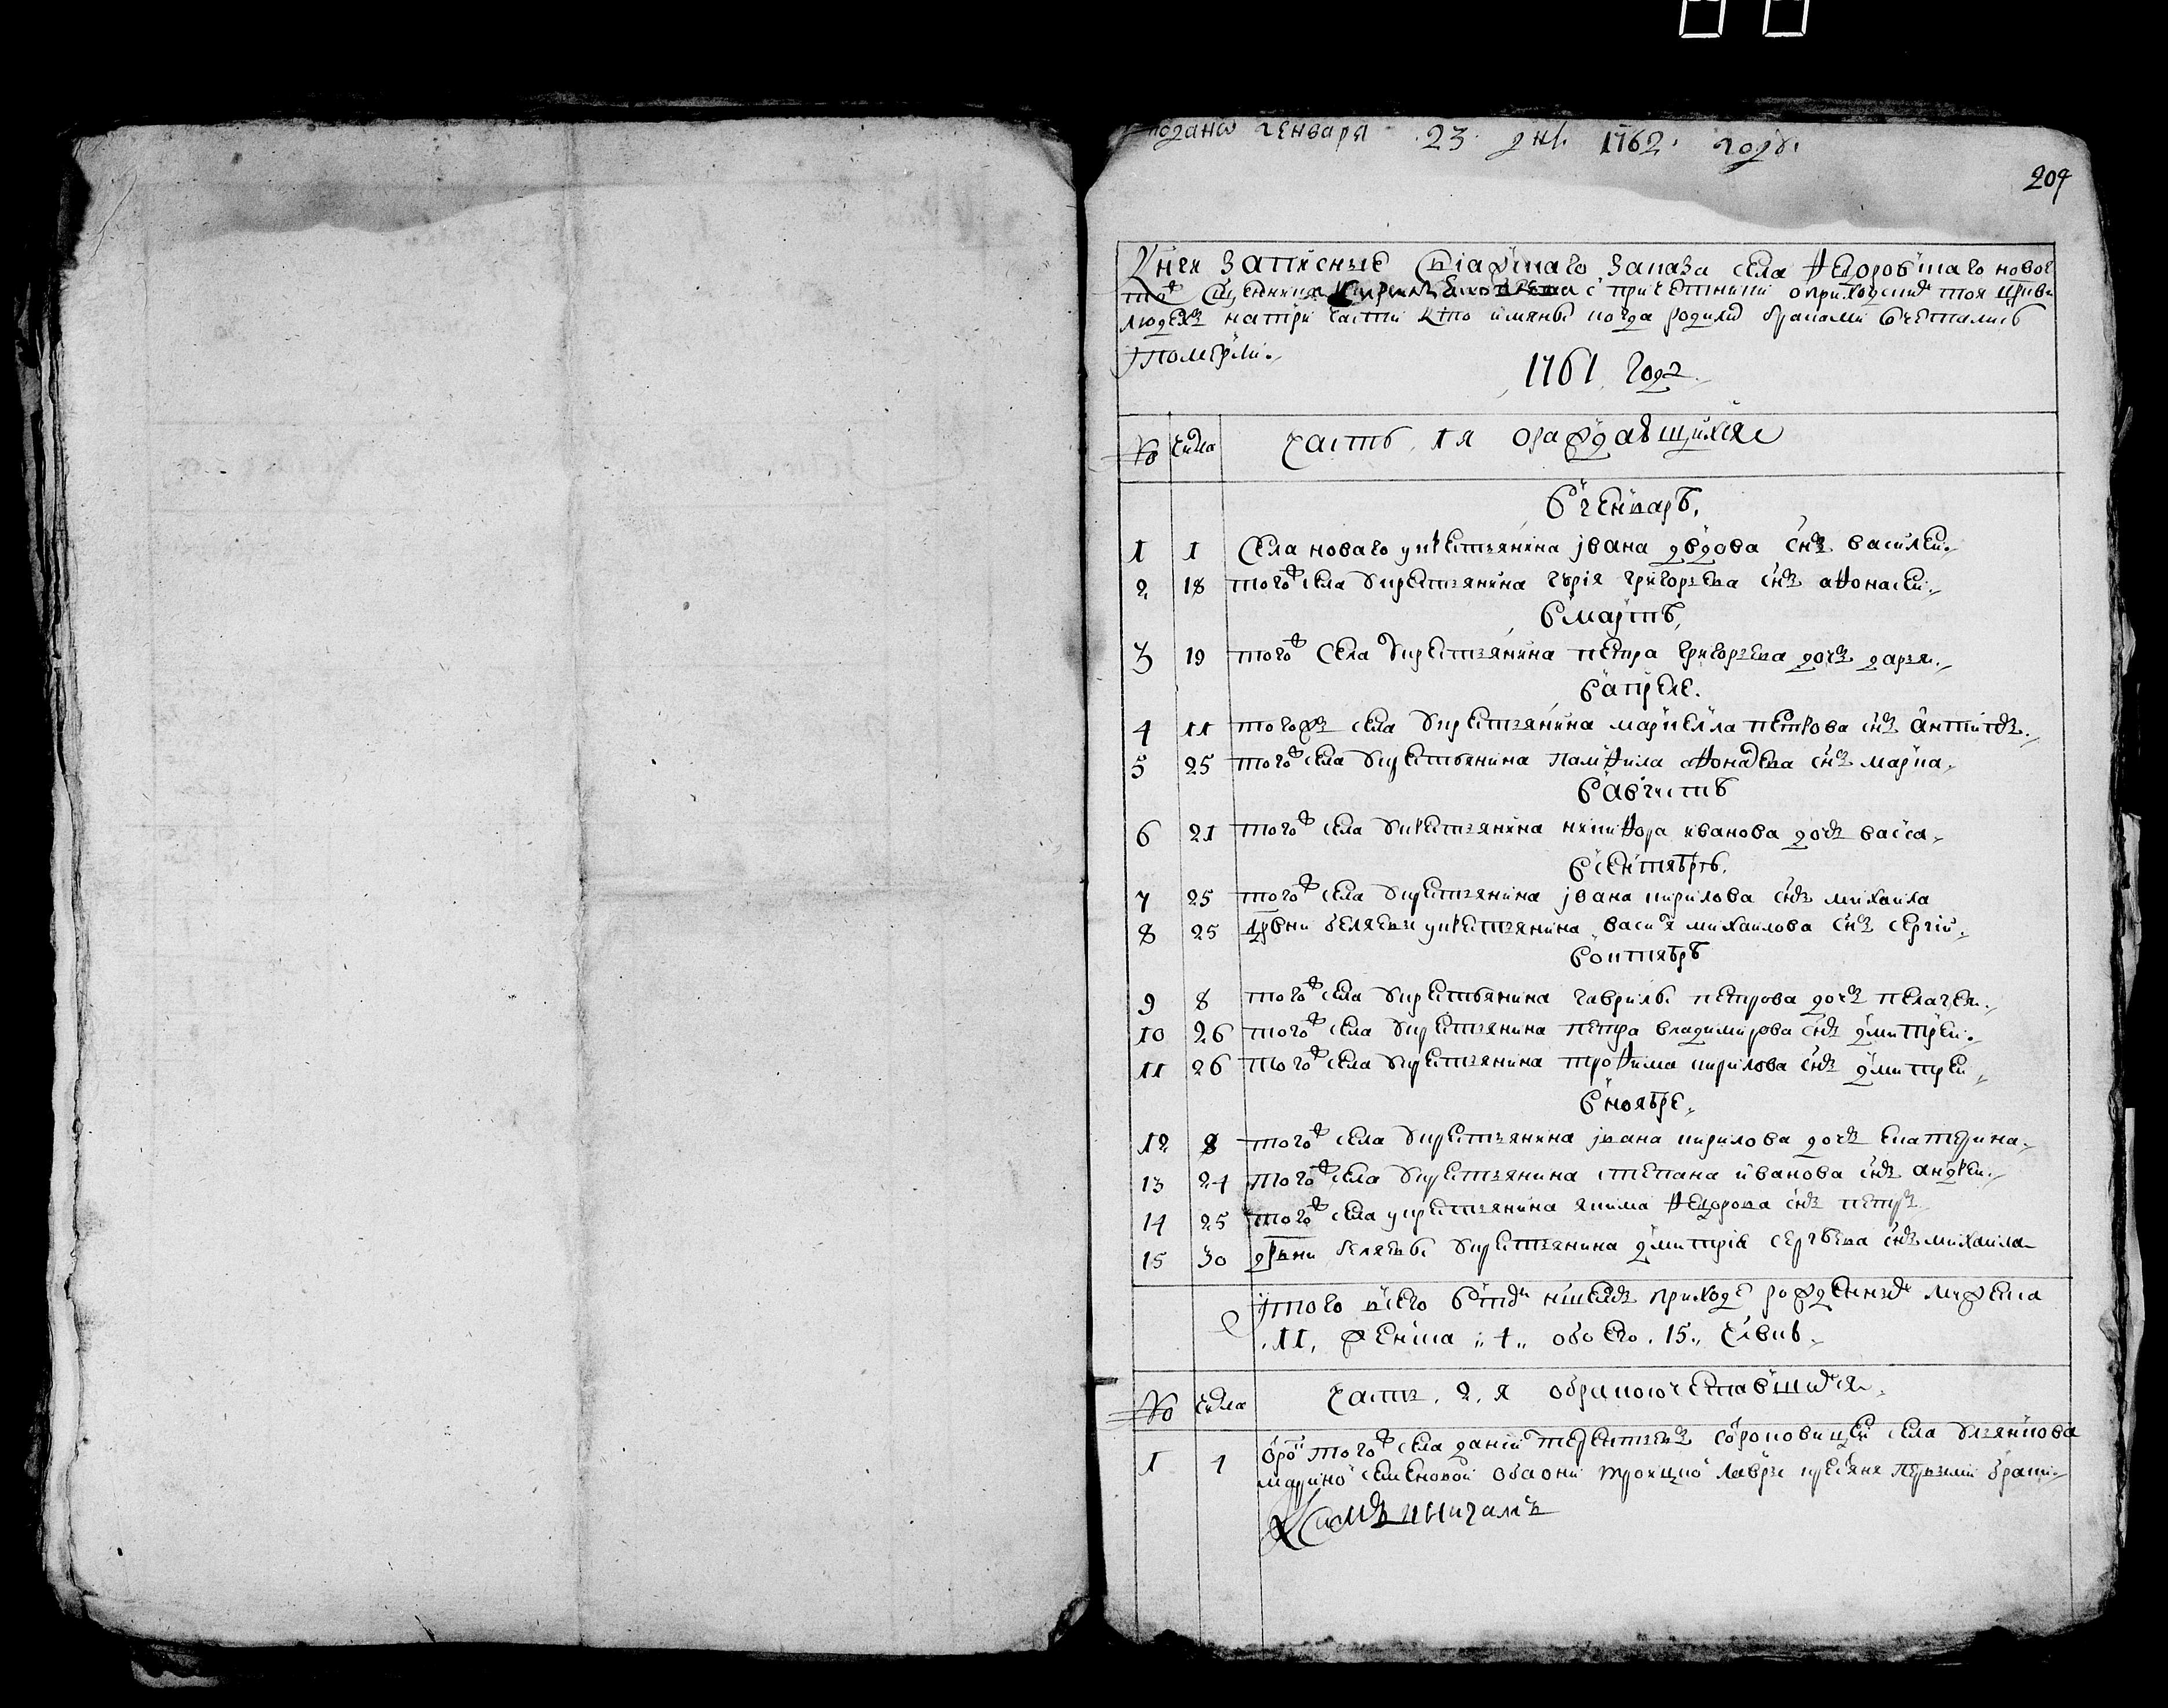 подано генваря 23 дня 1762 году
209
Книги записные Радонежскаго
людехъ на три части кто имяны когда родились браками сочетались
и померли
1761 годъ
№ числа часть 1я о раждавшихся
В генваре
1 1 Села новаго у крестьянина ивана сн҃ъ василей
2 18 того ж села у крестьянина гурія григорьева сн҃ъ афонасей
В марте
3 19 того ж села у крестьянина петра григорьева дочь дарья
В апреле
4 11 того ж села у крестьянина маркелла петрова сн҃ъ антипъ
5 25 того ж села у крестьянина памфила афонасева сн҃ъ марка
В августе
6 21 того ж села у крестьянина никифора иванова дочь васса
В сентябре
7 25 того ж села у крестьянина ивана кирилова сн҃ъ михаила
8 25 дрвни беляевы у крестьянина василя михаилова сн҃ъ сергій
В октябре
9 8 того ж села у крестьянина гаврилы петрова дочь пелагея
10 26 того ж села у крестьянина петра владимирова сн҃ъ дмитрей
11 26 того ж села у крестьянина трофима кирилова сн҃ъ дмитрей
В ноябре
12 8 того ж села у крестьянина ивана кирилова дочь екатерина
13 24 того ж села у крестьянина степана иванова сн҃ъ андрей
14 25 того ж села у крестьянина якима федорова сн҃ъ петръ
15 30 дрвни беляевы у крестьянина дмитрія сергѣева сн҃ъ михаила
итого всего в приходе рожденныхъ мужеска
11 женска 4 обоего 15 человекъ
№ числа часть 2я о бракосочетавшихся
1 того ж села села
марино семеновой оба они троицкой лавры крестяня первымъ бракомъ